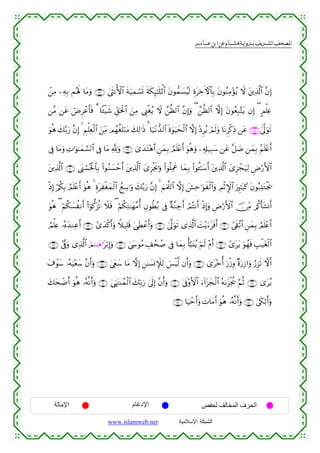 المصحف الشريف برواية هشام عن ابن عامر
إِنَّ ٱلَّذِينَ لَا يُؤْمِنُونَ بِٱلْأَخِرَةِ لَيُسَمُّونَ ٱلْمَلَٰٓئِكَةَ تَسْمِيَةَ ٱلْأُنثَىٰ ۝ وَمَا لَهُم بِهِۦ مِنْ
عِلْمٍ ۖ إِن يَتَّبِعُونَ إِلَّا ٱلظَّنَّ ۖ وَإِنَّ ٱلظَّنَّ لَا يُغْنِى مِنَ ٱلْحَقِّ شَيْـًٔا ۝ فَأَعْرِضْ عَن مَّن
تَوَلَّىٰ ۝ عَن ذِكْرِنَا وَلَمْ يُرِدْ إِلَّا ٱلْحَيَوٰةَ ٱلدُّنْيَا ۝ ذَٰلِكَ مَبْلَغُهُم مِّنَ ٱلْعِلْمِ ۚ إِنَّ رَبَّكَ هُوَ
أَعْلَمُ بِمَن ضَلَّ عَن سَبِيلِهِۦ وَهُوَ أَعْلَمُ بِمَنِ ٱهْتَدَىٰ ۝ وَلِلَّهِ مَا فِى ٱلسَّمَٰوَٰتِ وَمَا فِى
ٱلْأَرْضِ لِيَجْزِىَ ٱلَّذِينَ أَسَٰٓـُٔوا۟ بِمَا عَمِلُوا۟ وَيَجْزِىَ ٱلَّذِينَ أَحْسَنُوا۟ بِٱلْحُسْنَى ۝ ٱلَّذِينَ
يَجْتَنِبُونَ كَبَٰٓئِرَ ٱلْإِثْمِ وَٱلْفَوَٰحِشَ إِلَّا ٱللَّمَمَ ۚ إِنَّ رَبَّكَ وَٰسِعُ ٱلْمَغْفِرَةِ ۚ هُوَ أَعْلَمُ بِكُمْ إِذْ
أَنشَأَكُم مِّنَ ٱلْأَرْضِ وَإِذْ أَنتُمْ أَجِنَّةٌ فِى بُطُونِ أُمَّهَٰتِكُمْ ۖ فَلَا تُزَكُّوٓا۟ أَنفُسَكُمْ ۖ هُوَ
أَعْلَمُ بِمَنِ ٱتَّقَىٰٓ ۝ أَفَرَءَيْتَ ٱلَّذِى تَوَلَّىٰ ۝ وَأَعْطَىٰ قَلِيلًا وَأَكْدَىٰٓ ۝ أَعِندَهُۥ عِلْمُ
ٱلْغَيْبِ فَهُوَ يَرَىٰٓ ۝ أَمْ لَمْ يُنَبَّأْ بِمَا فِى صُحُفِ مُوسَىٰ ۝ وَإِبْرَٰهَٰمَ ٱلَّذِى وَفَّىٰٓ ۝
أَلَّا تَزِرُ وَازِرَةٌ وِزْرَ أُخْرَىٰ ۝ وَأَن لَّيْسَ لِلْإِنسَٰنِ إِلَّا مَا سَعَىٰ ۝ وَأَنَّ سَعْيَهُۥ سَوْفَ
يُرَىٰ ۝ ثُمَّ يُجْزَىٰهُ ٱلْجَزَآءَ ٱلْأَوْفَىٰ ۝ وَأَنَّ إِلَىٰ رَبِّكَ ٱلْمُنتَهَىٰ ۝ وَأَنَّهُۥ هُوَ أَضْحَكَ
وَأَبْكَىٰ ۝ وَأَنَّهُۥ هُوَ أَمَاتَ وَأَحْيَا ۝
الحرف المخالف لحفص الإدغام الإمالة
www.islamweb.net الشبكة الإسلامية